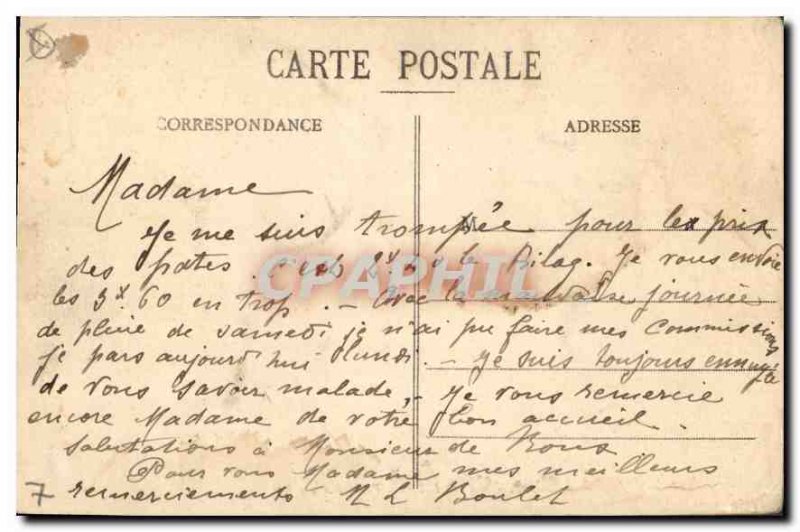 CARTE POSTALE
CORRESPONDANCE
ADRESSE
Madame
Je me suis trompée pour le prix
des pates c'est 2 le Je vous envoie
les 3 60 en trop. — Avec la mauvaise journée
de pluie de samedi je n'ai pu faire mes commissions
je pars aujourd'hui lundi. — Je suis toujours ennuyée
de vous savoir malade, — Je vous remercie
encore Madame de votre bon accueil.
Salutations à Monsieur de
Pour vous Madame mes meilleurs
remerciements M L Boulet
7
CPAPHIL